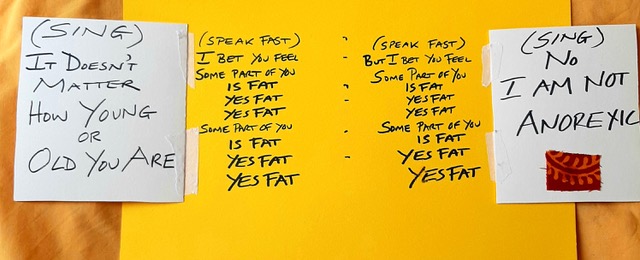 (SING)
IT DOESN'T
MATTER
HOW YOUNG
OR
OLD YOU ARE
(SPEAK FAST)
I BET YOU FEEL
SOME PART OF YOU
IS FAT
YES FAT
YES FAT
SOME PART OF YOU
IS FAT
YES FAT
YES FAT
(SPEAK FAST)
BUT I BET YOU FEEL
SOME PART OF YOU
IS FAT
YES FAT
YES FAT
SOME PART OF YOU
IS FAT
YES FAT
YES FAT
(SING)
NO
I AM NOT
ANOREXIC